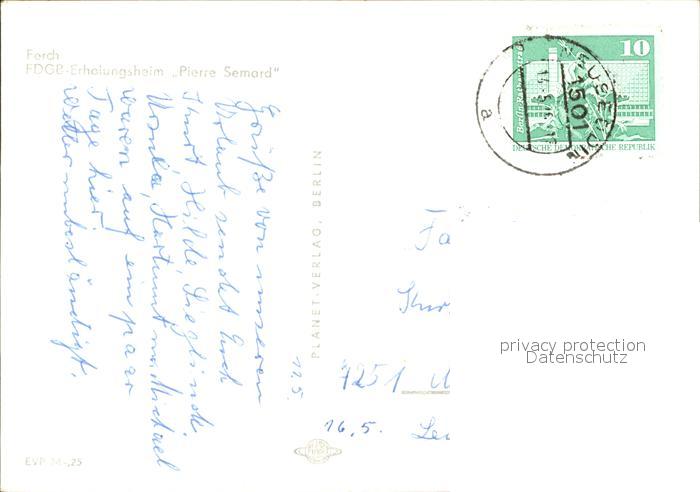 Ferch
FDGB-Erholungsheim „Pierre Semard"
Grüße von unseren
Urlaub sendet Euch
Kurt, Hilde, Sieglinde
Ursula, Hartmut u. Michael
waren auf ein paar
Tage hier.
Wetter unbeständigt.
12.5.
PLANET-VERLAG, BERLIN
EVP M -,25
10
DEUTSCHE DEMOKRATISCHE REPUBLIK
1501
a
Fa
Kur
7251
16.5.
privacy protection
Datenschutz